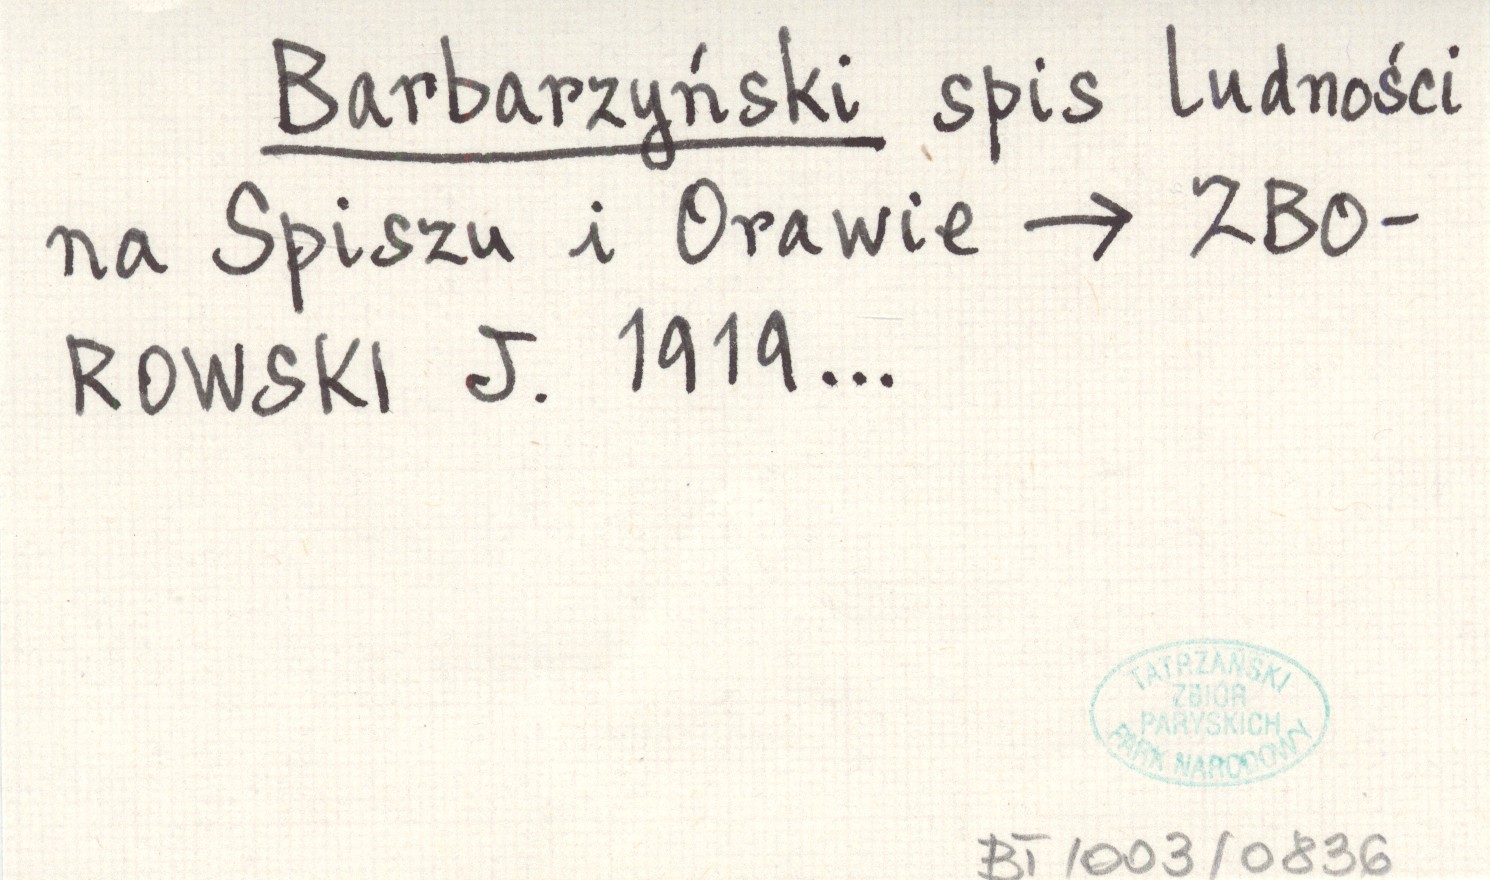 Barbarzyński spis ludności
na Spiszu i Orawie → ZBO-
ROWSKI J. 1919...
TATRZAŃSKI
ZBIÓR
PARYSKICH
PARK NARODOWY
BT/003/0836